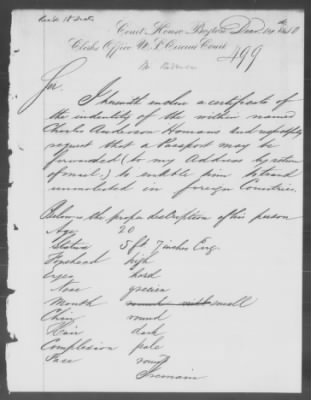 Court House, Boston, Dec
Clerks Office U.S. Circuit Court
499
Sir
I herewith enclose a certificate
of the indentity of the within named
Charles Anderson Homans and respectfully
request that a Passport may be
forwarded (to my Address by return
of mail,) to enable him to travel
unmolested in foreign Countries.
Below is the proper description of his person
Age 20
Stature 5 ft 7 inches Eng
Forehead high
Eyes
Nose grecian
Mouth small
Chin round
Hair dark
Complexion pale
Face round
I remain